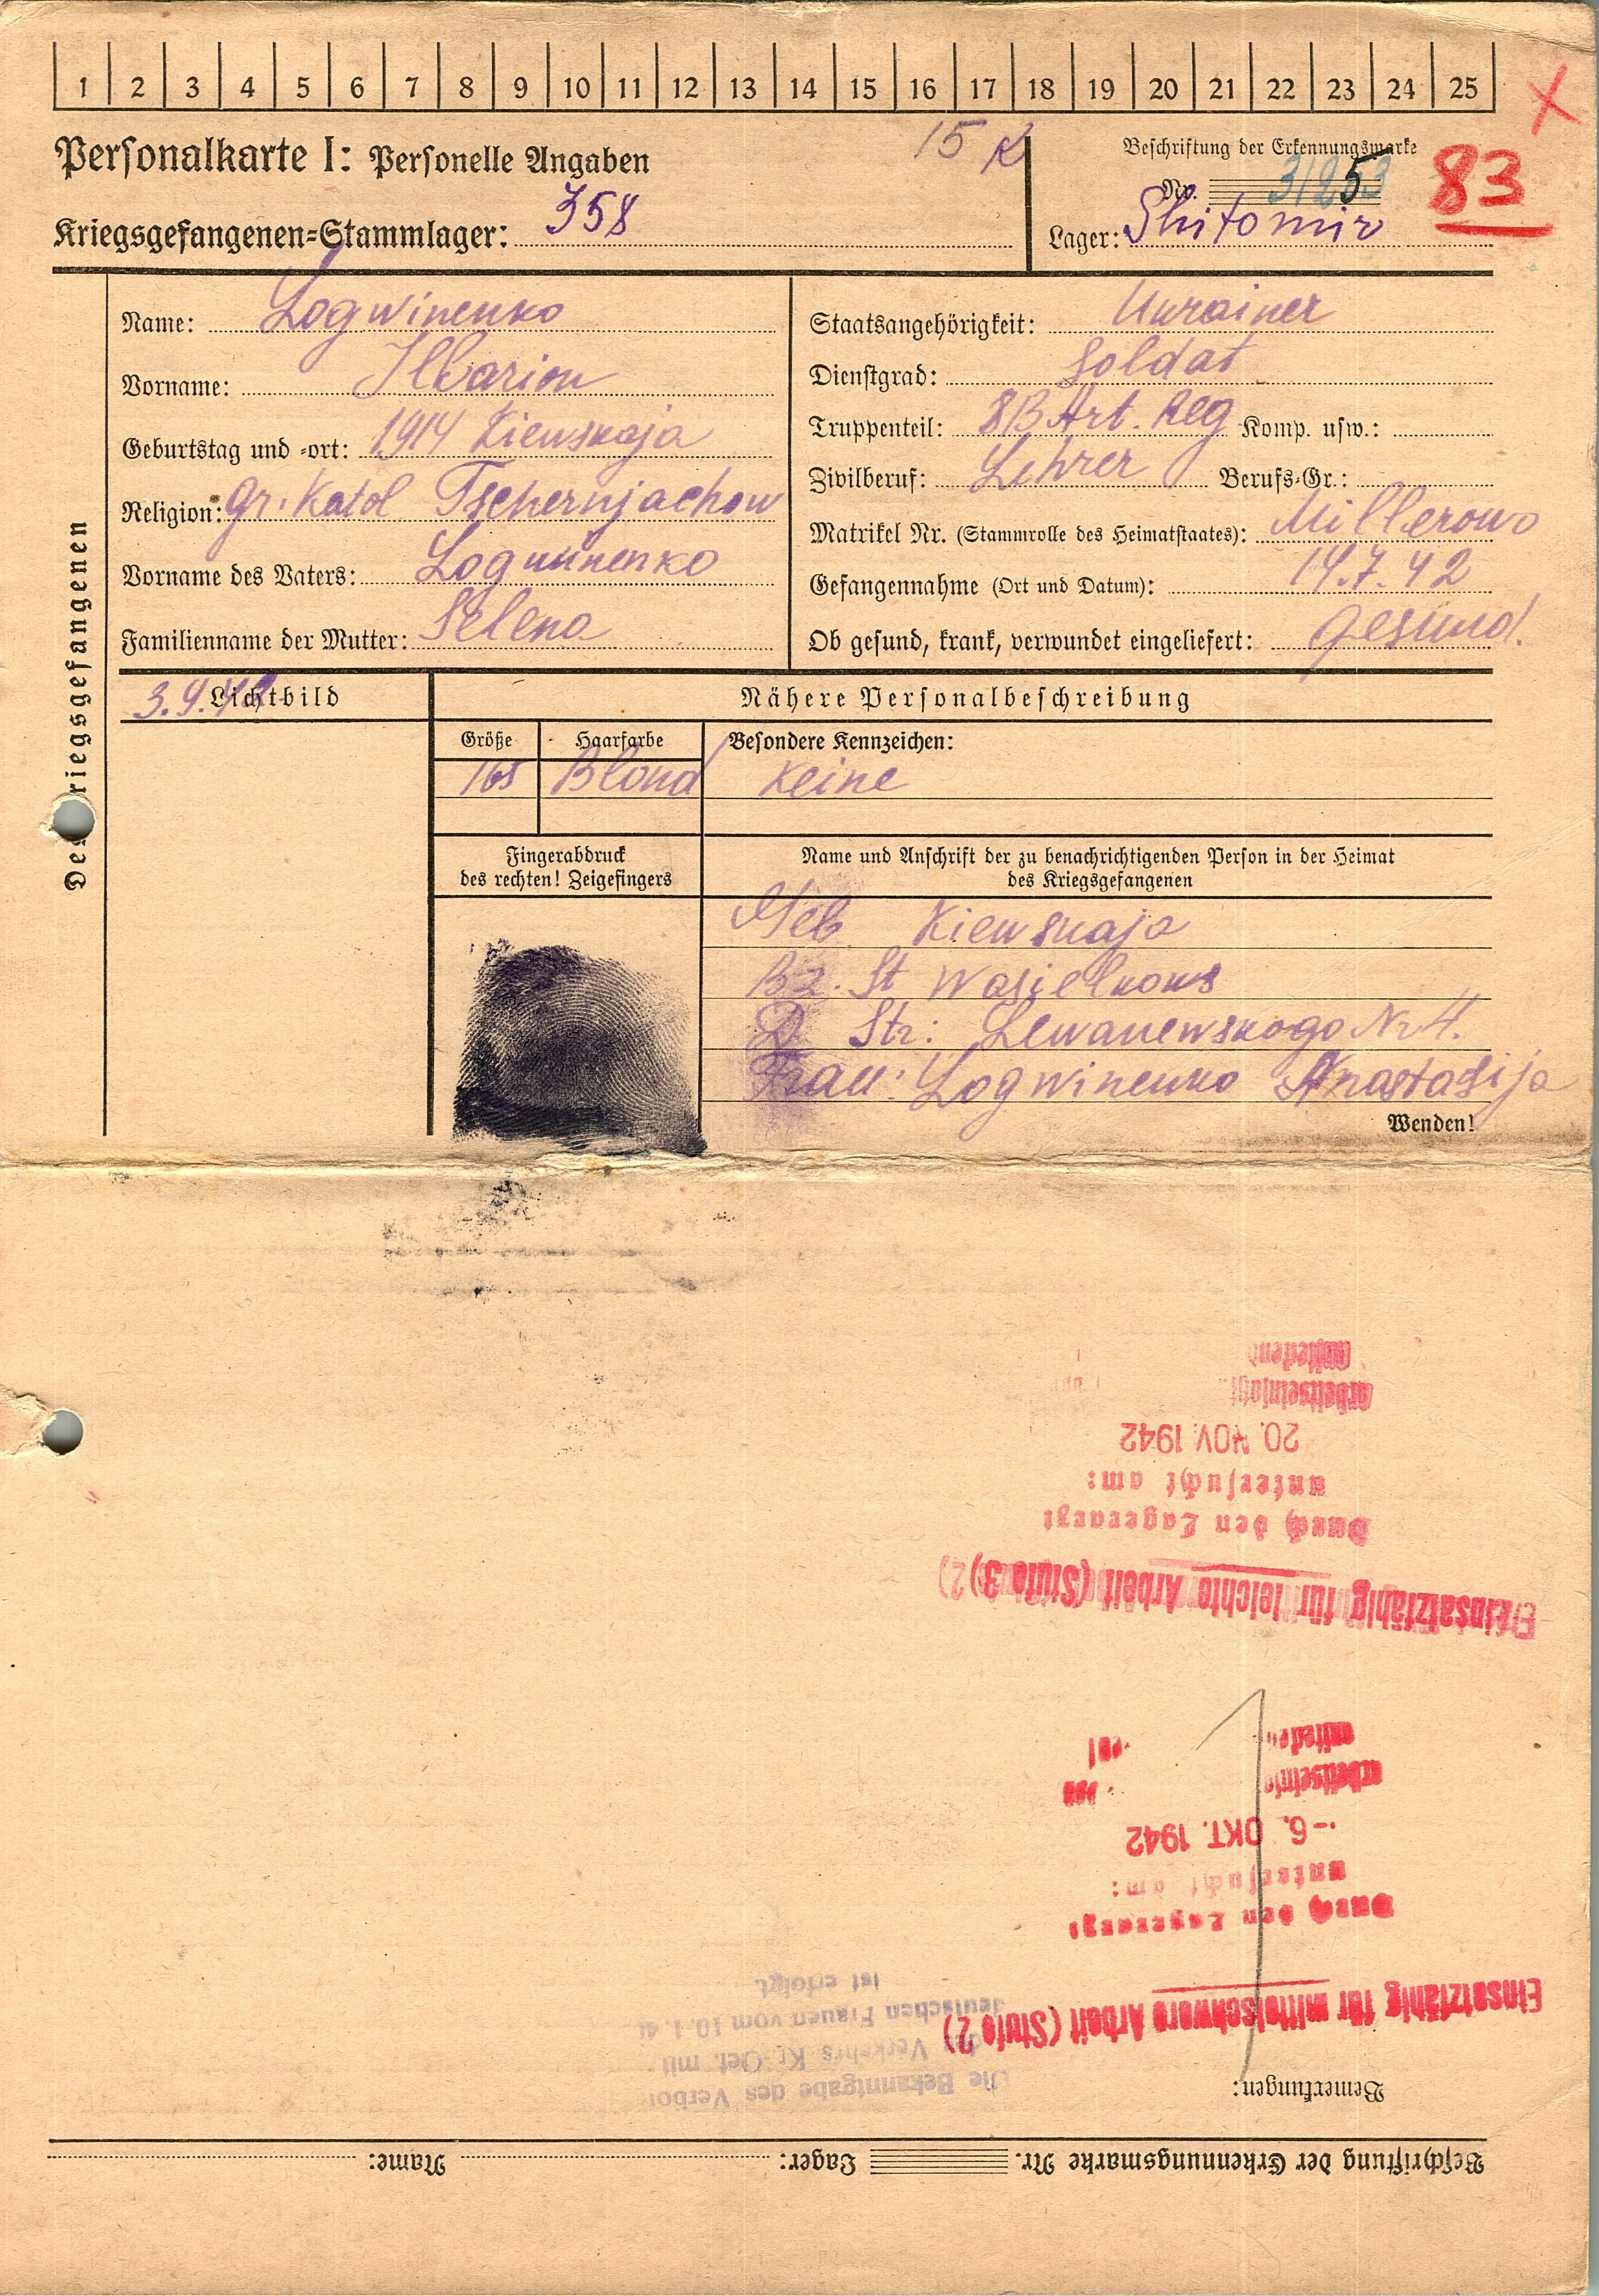 1 2 3 4 5 6 7 8 9 10 11 12 13 14 15 16 17 18 19 20 21 22 23 24 25
Personalkarte I: Personelle Angaben
15 K
Kriegsgefangenen=Stammlager: 358
Beschriftung der Erkennungsmarke
Nr. 31253
83
Lager: Shitomir
Des Kriegsgefangenen
Name: Logwinenko
Vorname: Ilarion
Geburtstag und -ort: 1914 Kiewskaja
Religion: Gr. Katol Tschernjachow
Vorname des Vaters: Logwinenko
Familienname der Mutter: Selena
Staatsangehörigkeit: Ukrainer
Dienstgrad: Soldat
Truppenteil: Art. Reg Komp. usw.:
Zivilberuf: Lehrer Berufs=Gr.:
Matrikel Nr. (Stammrolle des Heimatstaates): Millerowo
Gefangennahme (Ort und Datum): 14.7.42
Ob gesund, krank, verwundet eingeliefert: gesund.
3.9.42 Lichtbild
Nähere Personalbeschreibung
Größe Haarfarbe Besondere Kennzeichen:
165 Blond keine
Fingerabdruck
des rechten! Zeigefingers
Name und Anschrift der zu benachrichtigenden Person in der Heimat
des Kriegsgefangenen
Geb Kiewskaja
Bz. St Wasielkows
D Str: Lewanewskogo Nr 4.
Frau: Logwinenko Anastasija
Wenden!
Beschriftung der Erkennungsmarke Nr. Lager: Name:
Bemerkungen:
Die Bekanntgabe des Verbo
des Verkehrs Kr.-Gef. mit
deutschen Frauen vom 10.1.4
ist erfolgt.
Einsatzfähig für mittelschwere Arbeit (Stufe 2)
Durch den Lagerarzt
untersucht am:
-6. OKT. 1942
Einsatzfähig für leichte Arbeit (Stufe 3)
Durch den Lagerarzt
untersucht am:
20. NOV. 1942